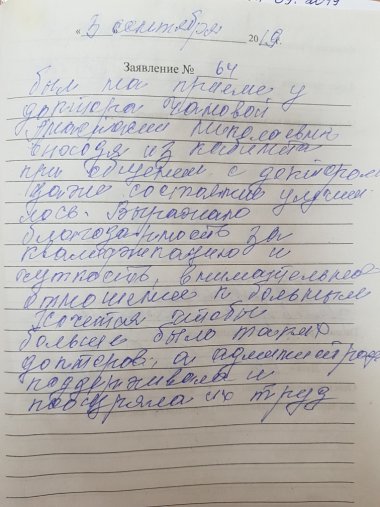 09.2019
« 5 сентября 2019.
Заявление № 64
был на приеме у
доктора
Николаевны
выходя из кабинета
при общении с доктором
даже состояние улучши-
лось. Выражаю
благодарность за
квалификацию и
чуткость, внимательное
отношение к больным
Хочется чтобы
больше было таких
докторов, а администрация
поддерживала и
поощряла их труд